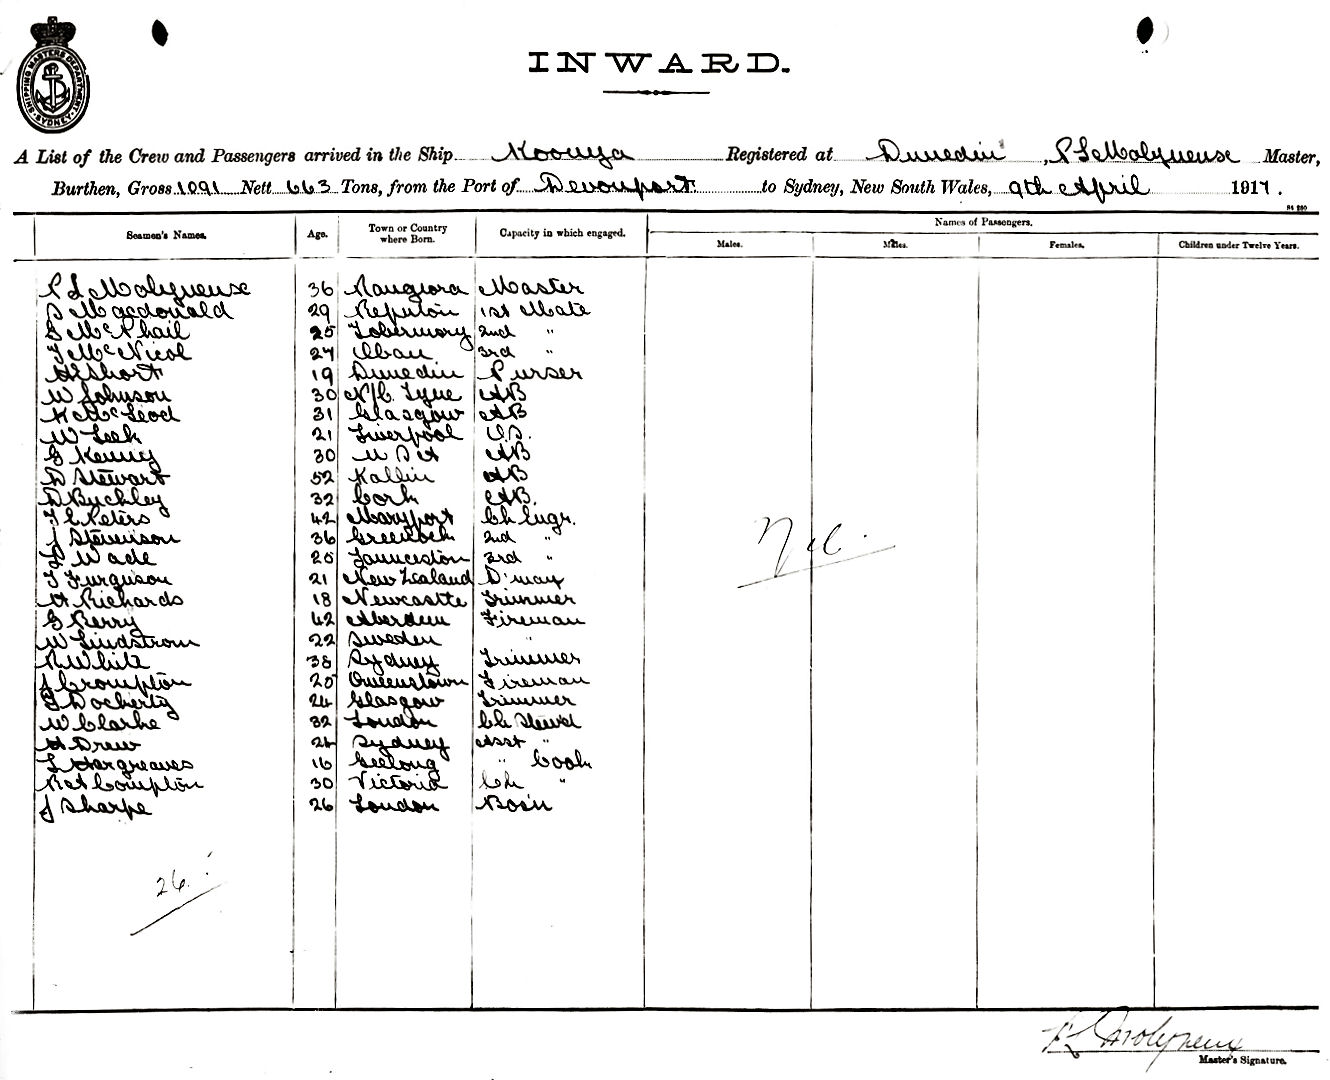 SHIPPING MASTERS DEPARTMENT SYDNEY
INWARD.
A List of the Crew and Passengers arrived in the Ship Koonya Registered at Dunedin, P L Molyneuse Master,
Burthen, Gross 1091 Nett 663 Tons, from the Port of Devonport to Sydney, New South Wales, 9th April 1917.
Seamen's Names. Age. Town or Country where Born. Capacity in which engaged. Names of Passengers.
Males. Males. Females. Children under Twelve Years.
P L Molyneuse 36 Rangiora Master
D Macdonald 29 1st Mate
G McPhail 25 Tobermory 2nd "
T McNicol 27 Oban 3rd "
H Short 19 Dunedin Purser
W Johnson 30 N/C. Tyne AB
K McLeod 31 Glasgow AB
W Leek 21 Liverpool O.S.
G Kenny 30 U S A AB
D Stewart 52 Kallin AB
D Buckley 32 Cork AB.
T C Peters 42 Maryport Ch Engr.
J Stevenson 36 Greenock 2nd "
L Wade 25 Launceston 3rd "
T Furguson 21 New Zealand D'man
H Richards 18 Newcastle Trimmer
G Berry 42 Aberdeen Fireman
W Lindstrom 22 Sweden "
R White 38 Sydney Trimmer
J Crompton 25 Queenstown Fireman
T Docherty 24 Glasgow Trimmer
W Clarke 32 London Ch Stewd
H Drew 24 Sydney Asst "
L Hargreaves 16 Geelong " Cook
R A Compton 30 Victoria Ch "
J Sharpe 26 London Bos'n
Nil.
26.
P L Molyneux
Master's Signature.